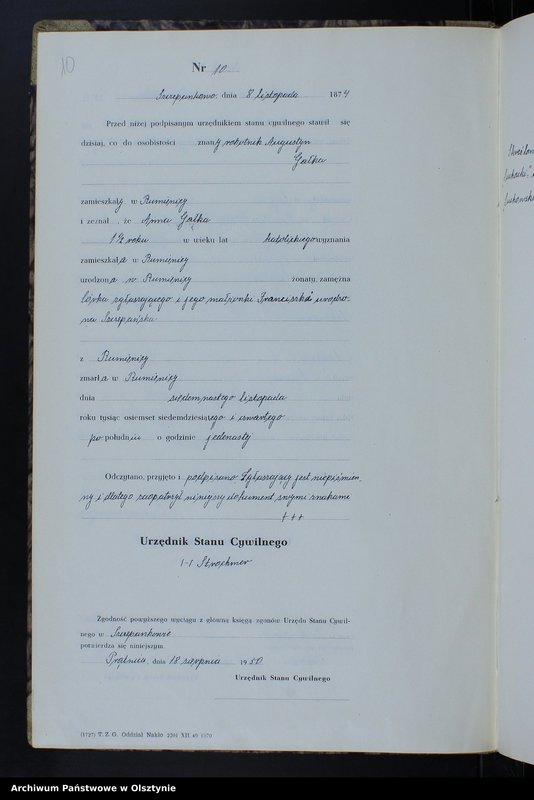 10
Nr 10
Szczepankowo, dnia 8 listopada 1874
Przed niżej podpisanym urzędnikiem stanu cywilnego stawił się
dzisiaj, co do osobistości znany robotnik Augustyn
Gałka
zamieszkały w Rumienicy
i zeznał, że Anna Gałka
1 1/2 roku w wieku lat katolickiego wyznania
zamieszkała w Rumienicy
urodzona w Rumienicy żonaty, zamężna
córka zgłaszającego i jego małżonki Franciszka urodzo-
na Szczepańska
z Rumienicy
zmarła w Rumienicy
dnia siedemnastego listopada
roku tysiąc osiemset siedemdziesiątego i czwartego
po południu o godzinie jedenastej
Odczytano, przyjęto i podpisano. Zgłaszający jest niepiśmien-
ny i dlatego zaopatrzył niniejszy dokument swymi znakami
+++
Urzędnik Stanu Cywilnego
/-/
Zgodność powyższego wyciągu z główną księgą zgonów Urzędu Stanu Cywil-
nego w Szczepankowie
potwierdza się niniejszym.
Prątnica, dnia 18 sierpnia 1950
Urzędnik Stanu Cywilnego
(1727) T. Z. G. Oddział Nakło 2201 XII. 49
Archiwum Państwowe w Olsztynie